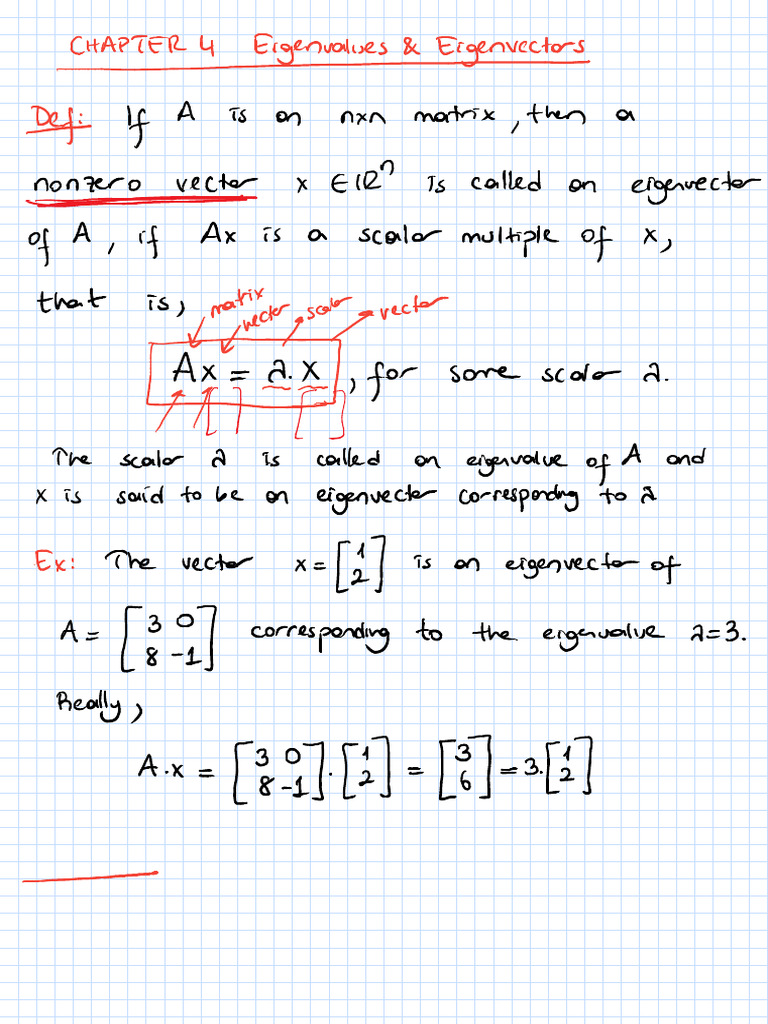 CHAPTER 4 Eigenvalues & Eigenvectors
Def: If A is an nxn matrix, then a
nonzero vector x ∈ ℝⁿ is called an eigenvector
of A, if Ax is a scalar multiple of x,
that is,
matrix vector scalar vector
Ax = λ.x , for some scalar λ.
[ ] [ ]
The scalar λ is called an eigenvalue of A and
x is said to be an eigenvector corresponding to λ
Ex: The vector x = [1; 2] is an eigenvector of
A = [3 0; 8 -1] corresponding to the eigenvalue λ=3.
Really,
A.x = [3 0; 8 -1] . [1; 2] = [3; 6] = 3. [1; 2]